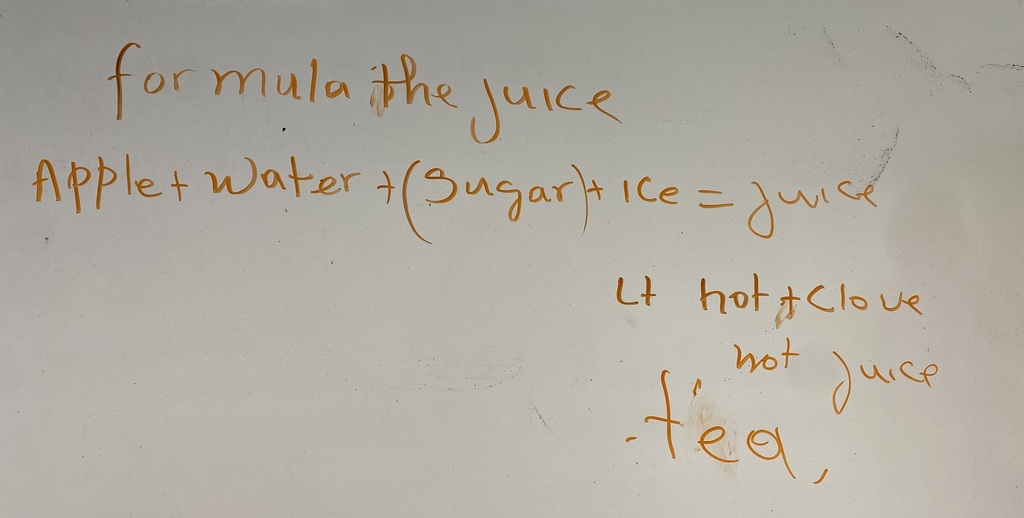 formula the juice
Apple + Water + (Sugar) + Ice = juice
hot + Clove
not juice
tea,